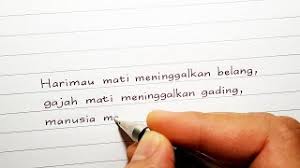 Harimau mati meninggalkan belang,
gajah mati meninggalkan gading,
manusia m